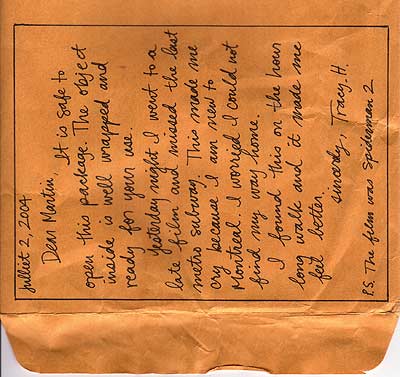 Julliet 2, 2004
Dear Martin,
It is safe to
open this package. The object
inside is well wrapped and
ready for your use.
Yesterday night I went to a
late film and missed the last
metro subway. This made me
cry because I am new to
Montreal. I worried I could not
find my way home.
I found this on the hour
long walk and it made me
feel better.
sincerely, Tracy. H.
P.S. The film was Spiderman 2